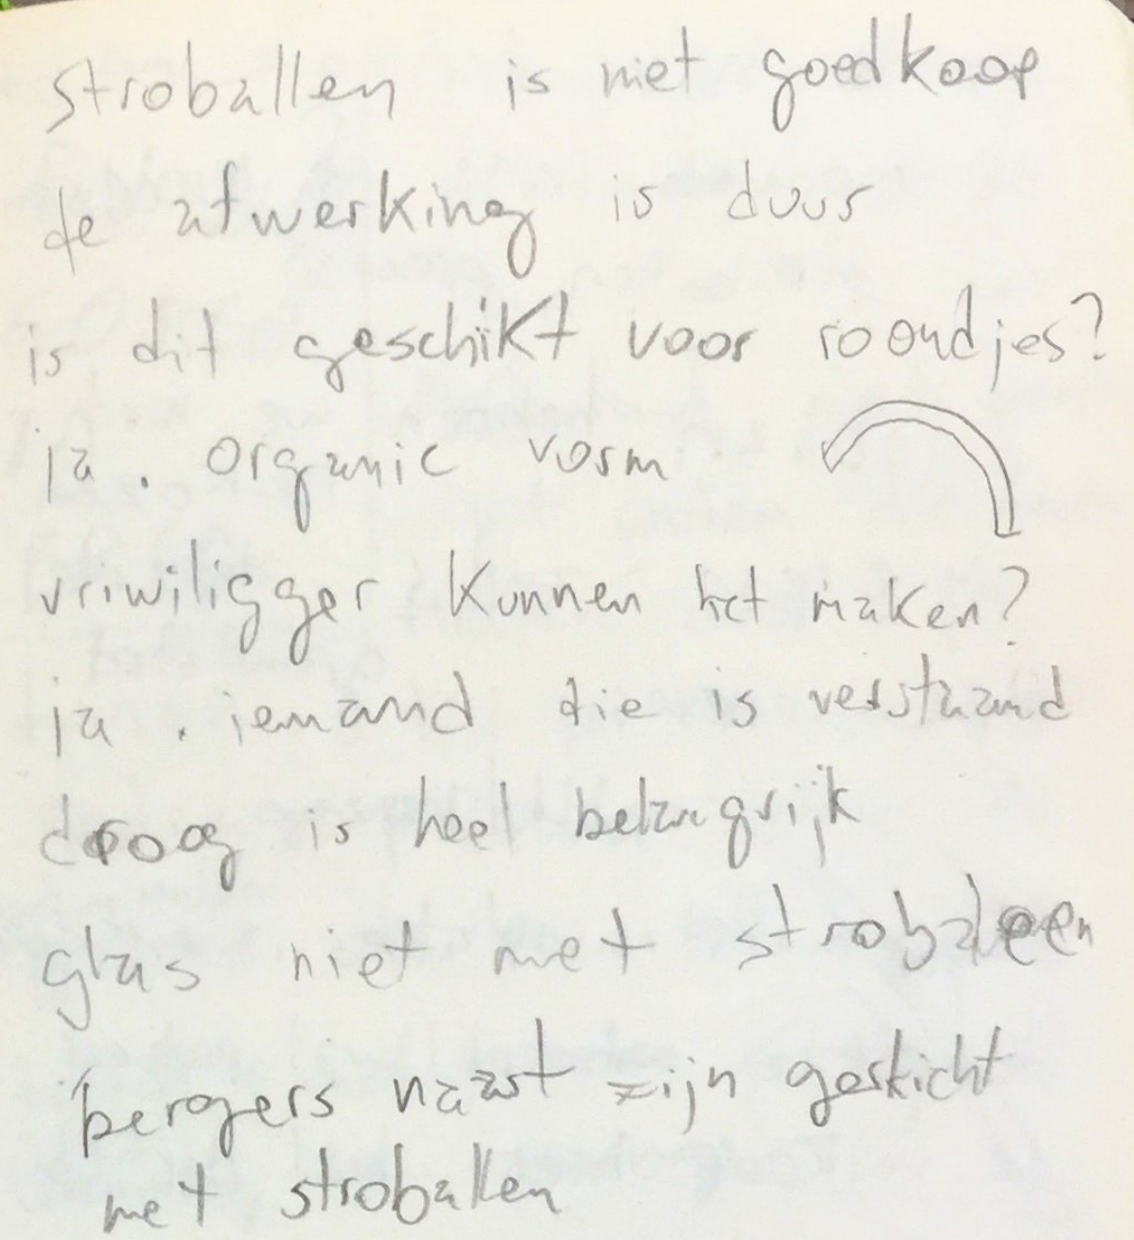 stroballen is niet goedkoop
de afwerking is duur
is dit geschikt voor roondjes?
ja. organic vorm
vriwiligger kunnen het maken?
ja. iemand die is verstaand
droog is heel belangrijk
glas niet met strobaleen
bergers naast zijn geskicht
met stroballen